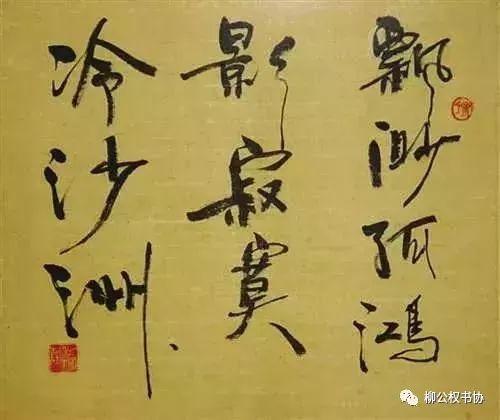 飘渺孤鸿
影寂寞
冷沙洲
柳公权书协